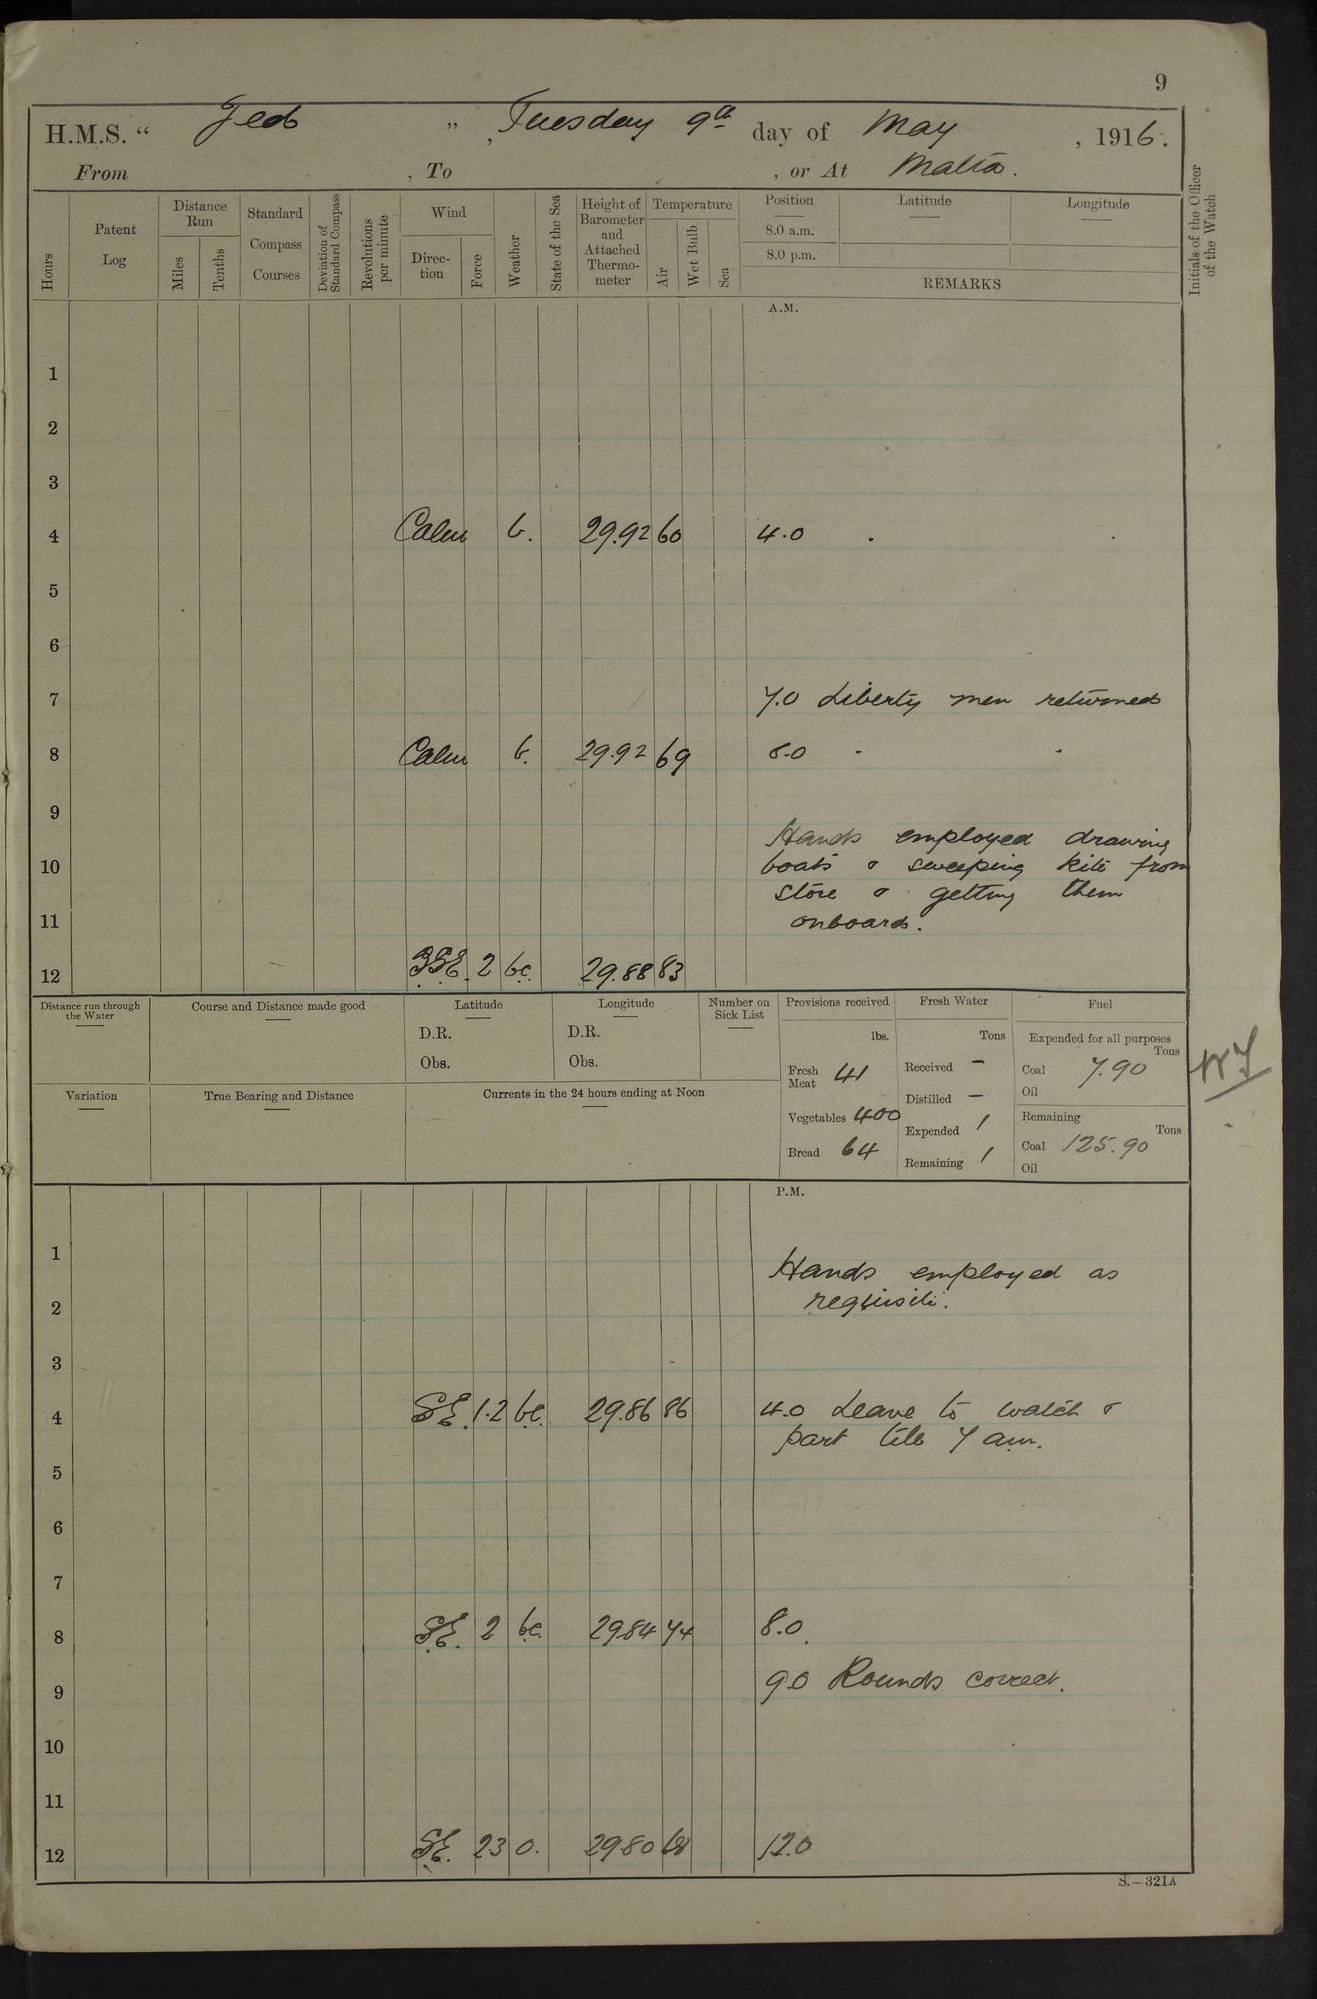 9
H.M.S. " Jed " , Tuesday 9th day of May , 1916.
From , To , or At Malta.
Hours
Patent Log
Distance Run
Miles
Tenths
Standard Compass Courses
Deviation of Standard Compass
Revolutions per minute
Wind
Direction
Force
Weather
State of the Sea
Height of Barometer and Attached Thermometer
Temperature
Air
Wet Bulb
Sea
Position
8.0 a.m.
8.0 p.m.
Latitude
Longitude
REMARKS
Initials of the Officer of the Watch
A.M.
1
2
3
4 Calm b. 29.92 60 4.0
5
6
7 7.0 Liberty men returned
8 Calm b. 29.92 69 8.0
9
Hands employed drawing
10 boats & sweeping kite from
store & getting them
11 onboard.
12 SSE. 2 bc. 29.88 83
Distance run through the Water
Course and Distance made good
Latitude
D.R.
Obs.
Longitude
D.R.
Obs.
Number on Sick List
Variation
True Bearing and Distance
Currents in the 24 hours ending at Noon
Provisions received
lbs.
Fresh Meat 41
Vegetables 400
Bread 64
Fresh Water
Tons
Received -
Distilled -
Expended 1
Remaining 1
Fuel
Expended for all purposes
Tons
Coal 7.90
Oil
Remaining
Tons
Coal 125.90
Oil
P.M.
1 Hands employed as
2 requisite.
3
4 SE. 1.2 bc. 29.86 86 4.0 Leave to watch &
part till 7 am.
5
6
7
8 SE. 2 bc. 2984 74 8.0.
9 9.0 Rounds correct.
10
11
12 SE. 23 o. 2980 68 12.0
S.—321A